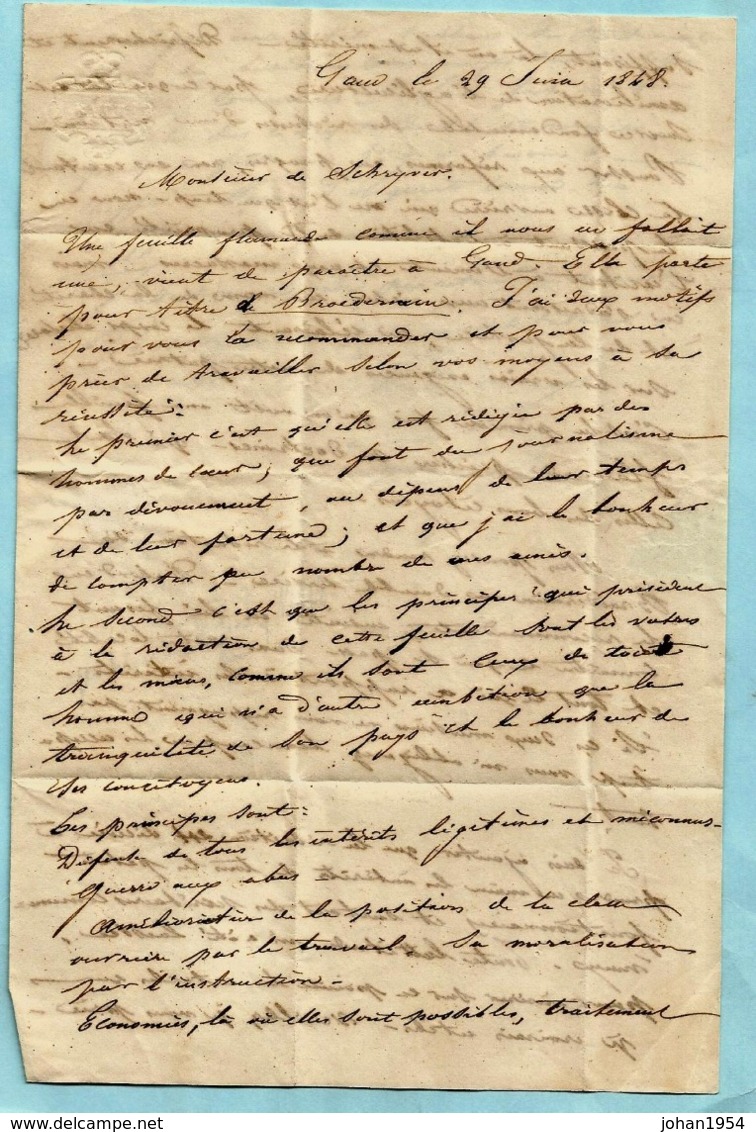 Gand le 29 Juin 1848.
Monsieur de Schryver.
Une feuille flamande comme il nous en fallait
une, vient de paraître à Gand. Elle porte
pour titre de Broedermin. J'ai deux motifs
pour vous la recommander et pour vous
prier de travailler selon vos moyens à sa
réussite:
Le premier c'est qu'elle est rédigée par des
hommes de cœur, que font du journalisme
par dévouement, au dépens de leur temps
et de leur fortune; et que j'ai le bonheur
de compter au nombre de mes amis.
Le second c'est que les principes qui président
à la rédaction de cette feuille sont les votres
et les miens, comme ils sont ceux de tout
homme qui n'a d'autre ambition que la
tranquilité de son pays et le bonheur de
ses concitoyens.
Ces principes sont:
Défense de tous les intérêts légitimes et méconnus-
Guerre aux abus-
Amélioration de la position de la classe
ouvrière par le travail. Sa moralisation
par l'instruction-
Economies, là où elles sont possibles, traitement
johan1954